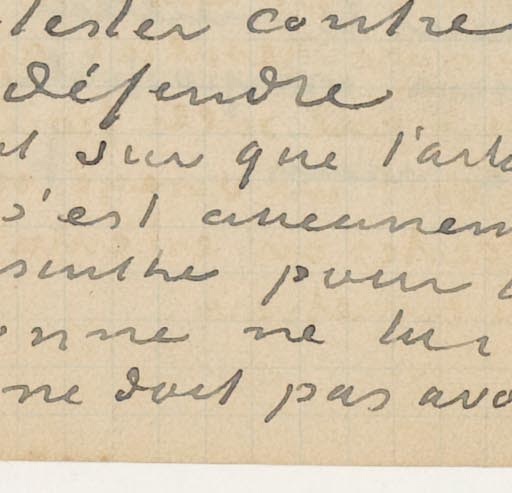 tester contre
défendre
et sur que l'arti
s'est aucunem
sinthe pour
onne ne lui
ne doit pas avo